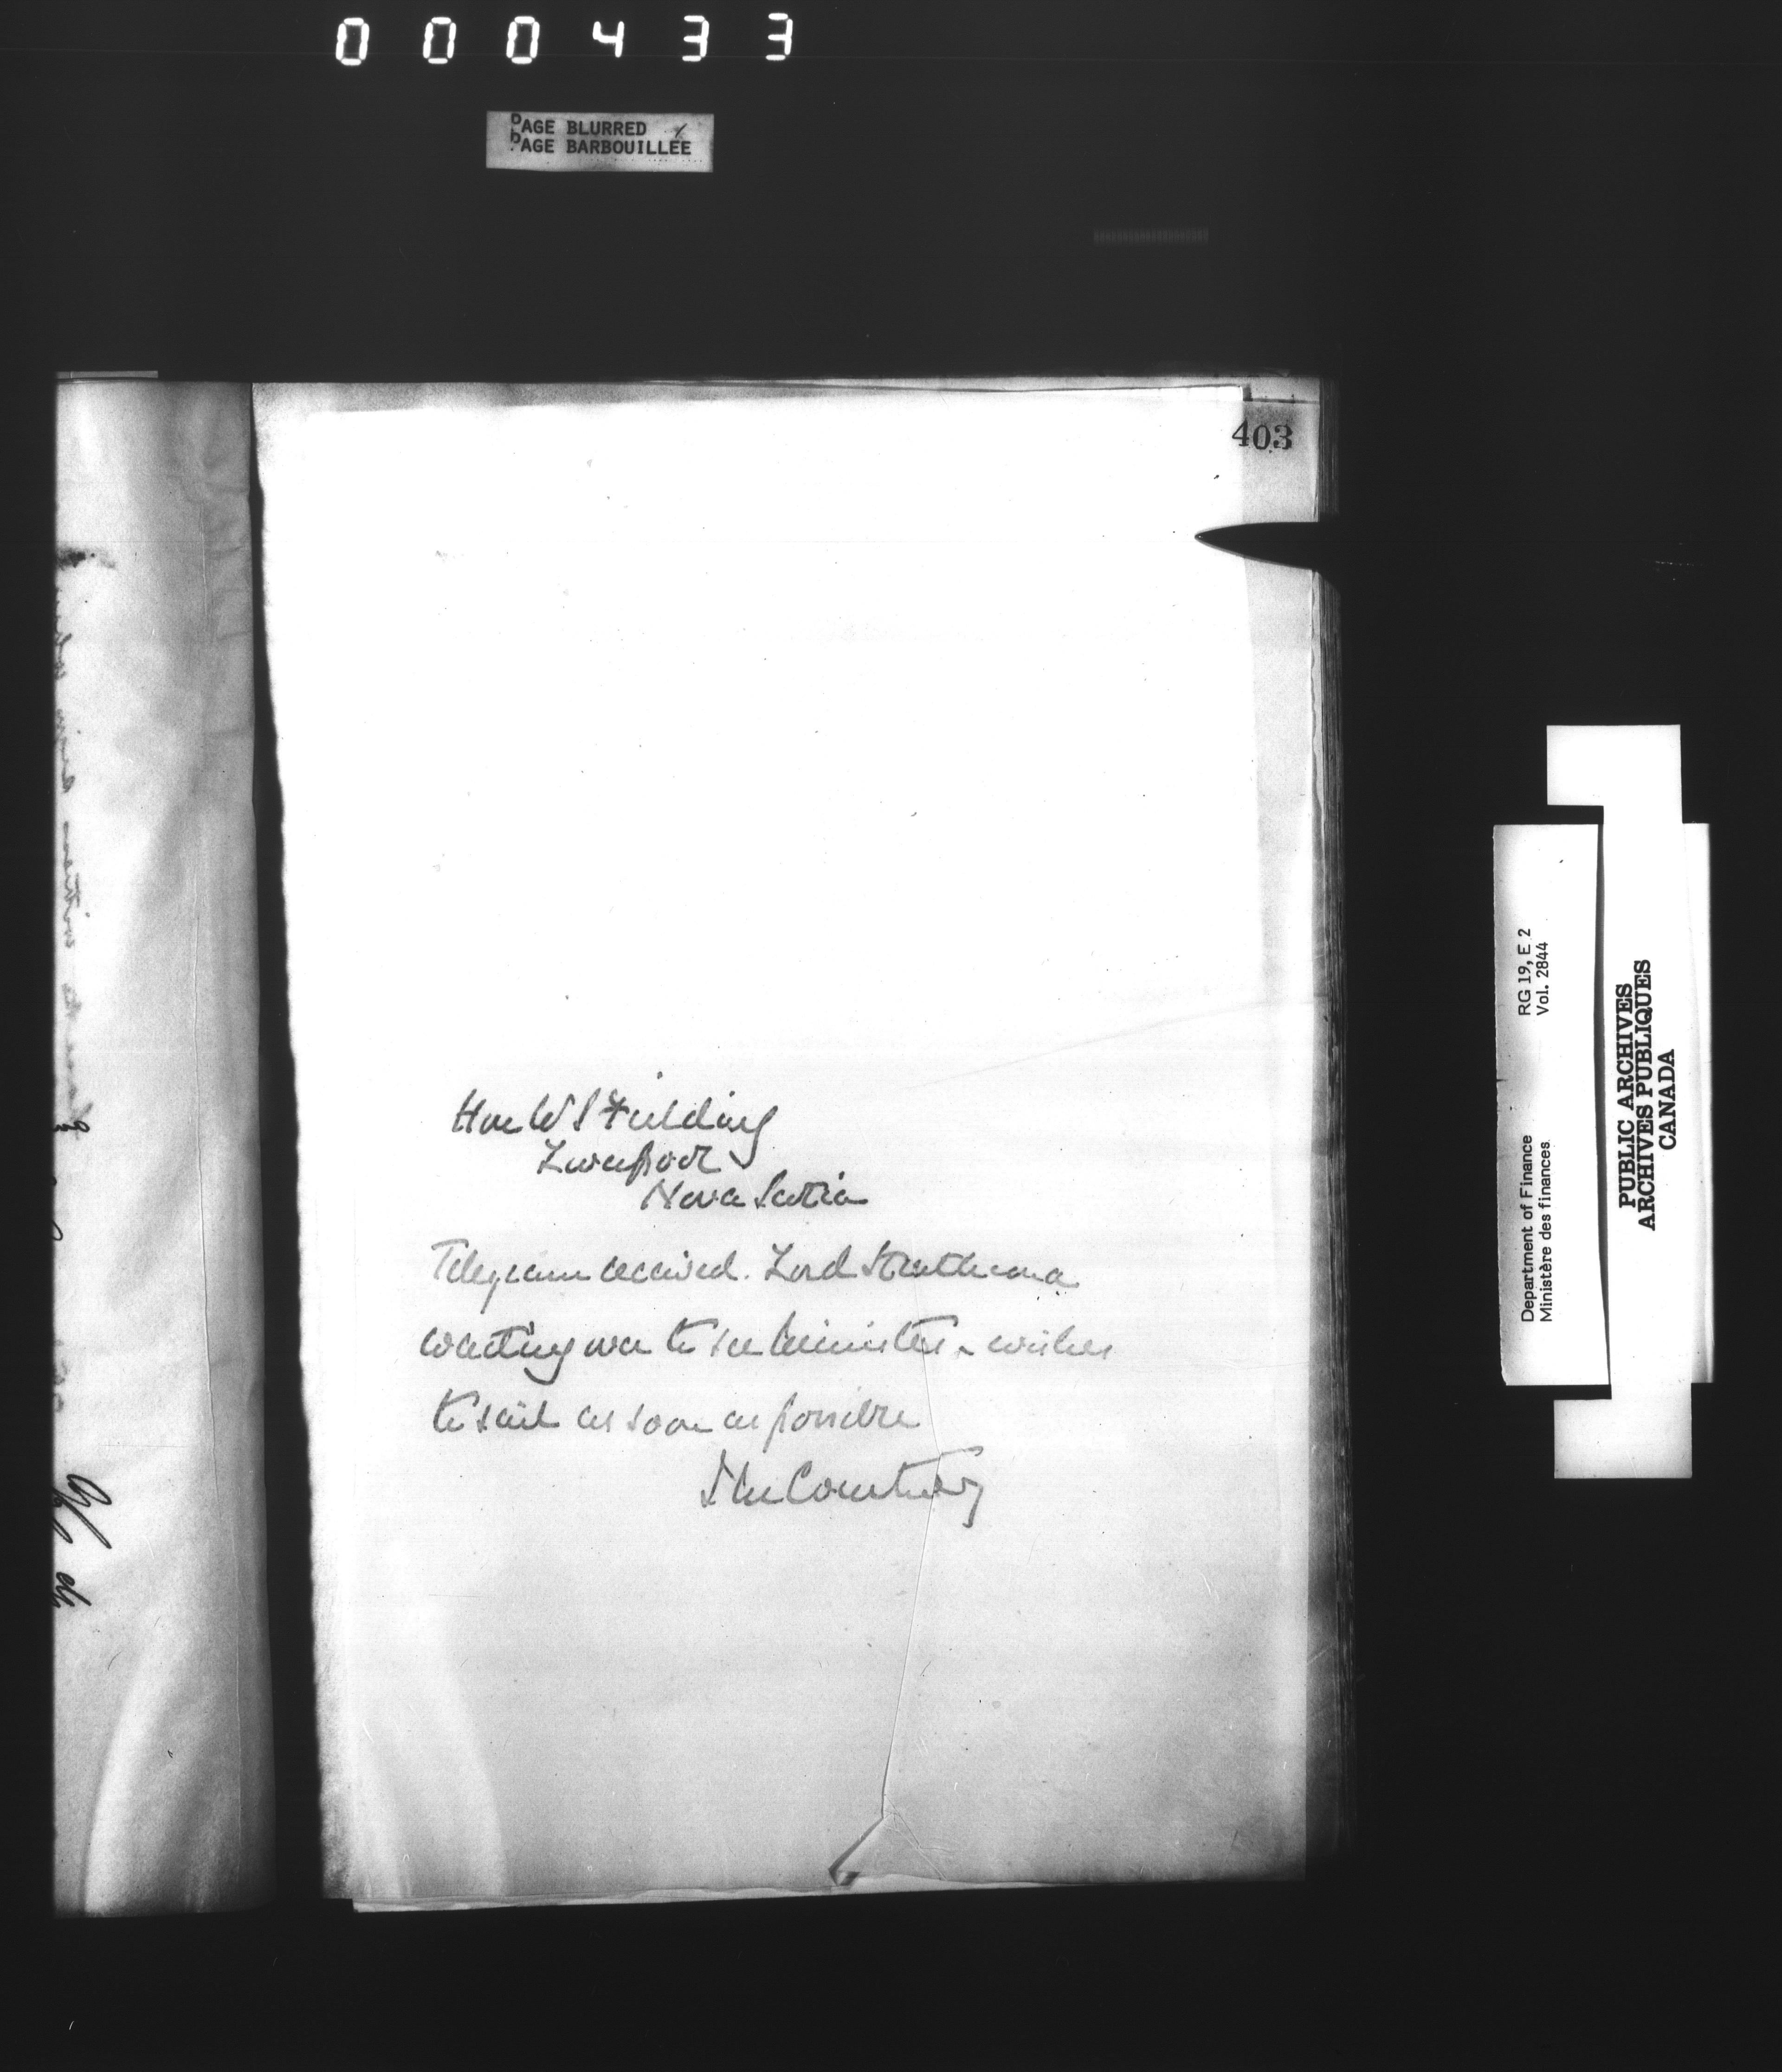 000433
PAGE BLURRED
PAGE BARBOUILLÉE
403
Hon W S Fielding
Liverpool
Nova Scotia
Telegram received. Lord Strathcona
waiting over to see Ministers & wishes
to sail as soon as possible
J M Courtney
Department of Finance RG 19, E 2
Ministère des finances Vol. 2844
PUBLIC ARCHIVES
ARCHIVES PUBLIQUES
CANADA